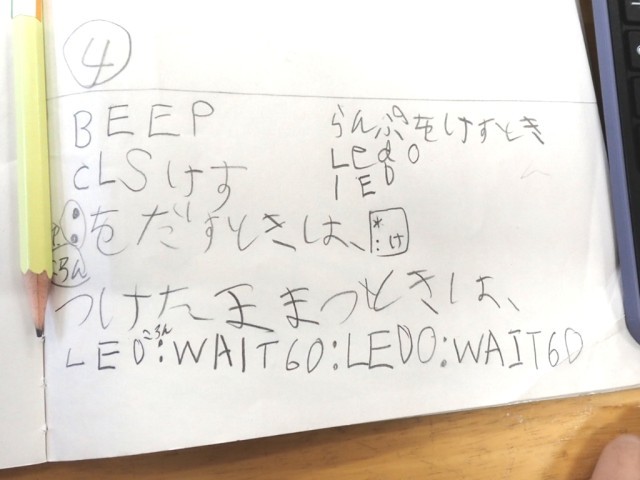 4
BEEP
CLS けす
:をだすときは、 * : け
ころん
つけたままつときは、
ころん
LED:WAIT60:LED0:WAIT60
らんぷをけすとき
Led0
LED